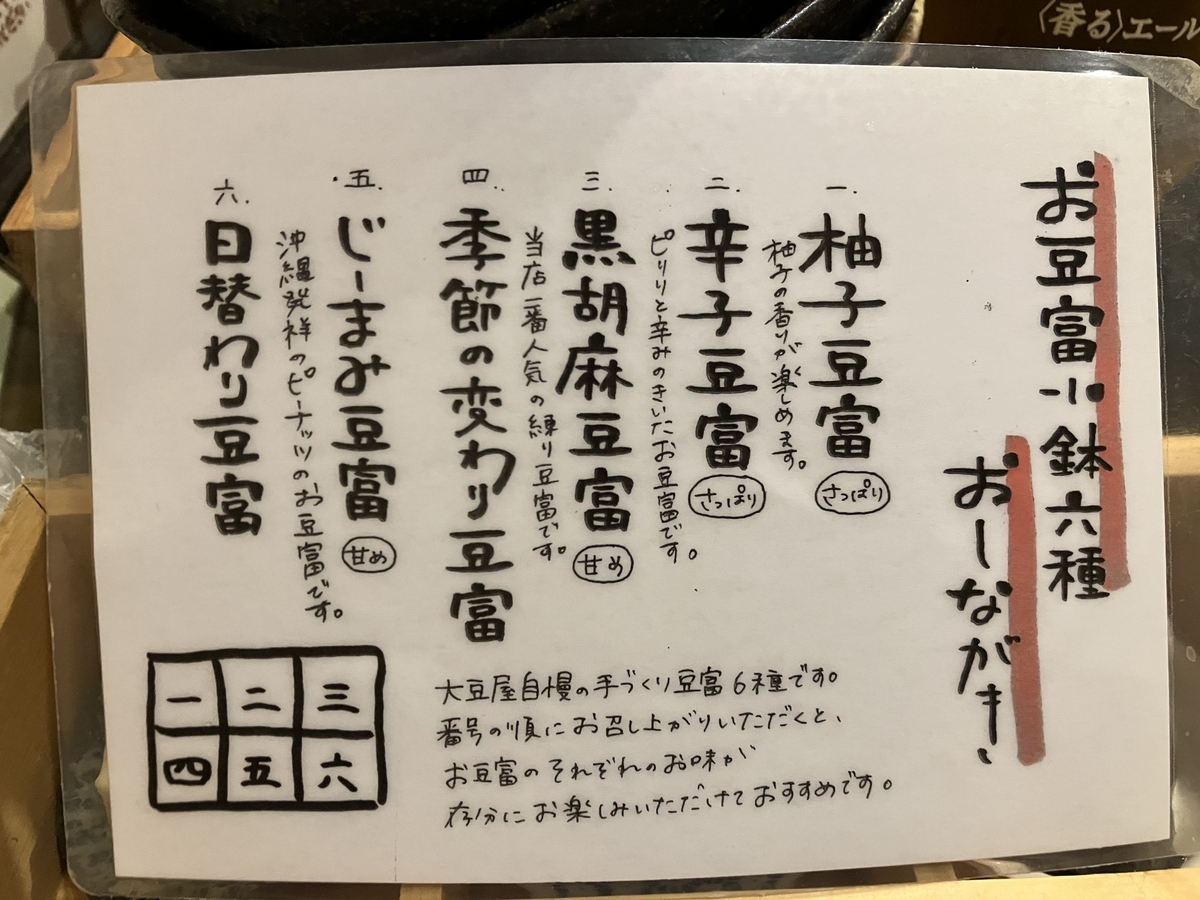 〈香る〉エール
お豆富小鉢六種
おーながき、
一.
柚子豆富
さっぱり
柚子の香りが楽しめます。
二.
辛子豆富
さっぱり
ピリリと辛みのきいたお豆富です。
三.
黒胡麻豆富
甘め
当店一番人気の練り豆富です。
四.
季節の変わり豆富
五.
じーまみ豆富
甘め
沖縄発祥のピーナッツのお豆富です。
六.
日替わり豆富
大豆屋自慢の手づくり豆富6種です。
番号の順にお召し上がりいただくと、
お豆富のそれぞれのお味が
存分にお楽しみいただけておすすめです。
一 二 三
四 五 六